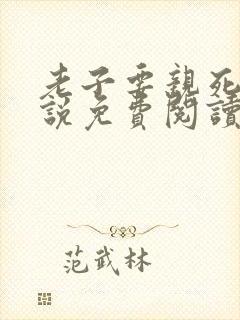 老子要親死
說免費閱讀
范武林